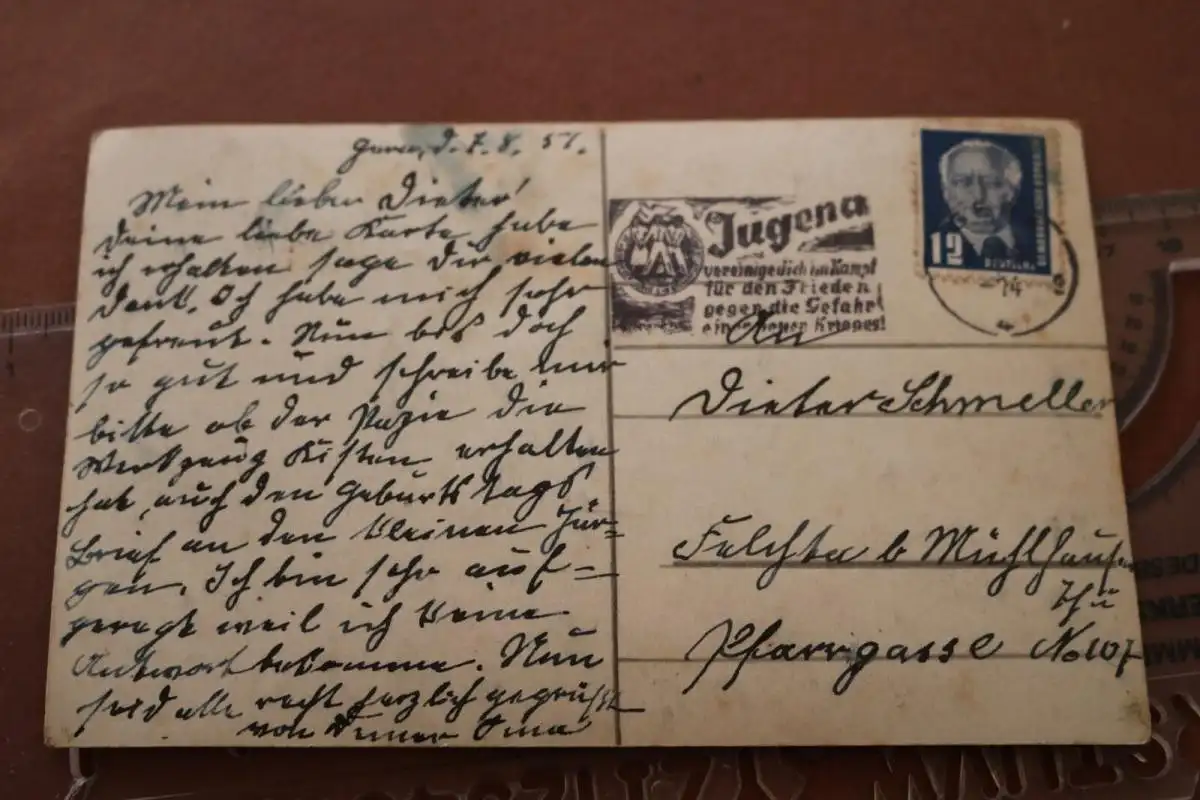 Gera, d. 7.8.51.
Mein lieber Dieter!
Deine liebe Karte habe
ich erhalten sage Dir vielen
Dank. Ich habe mich sehr
gefreut. Nun bis doch
so gut und schreibe mir
bitte ob der Papie die
Werkzeug Kisten erhalten
hat, auch den Geburtstags
Brief an den kleinen Jür-
gen. Ich bin sehr auf-
geregt weil ich keine
Antwort bekomme. Nun
seid alle recht herzlich gegrüßt
von Deiner Oma
Jugend
vereinige dich im Kampf
für den Frieden
gegen die Gefahr
eines neuen Krieges!
12
DEUTSCHE
74
An
Dieter Schmeller
Felchta b Mühlhausen
Thü
Pfarrgasse No 107